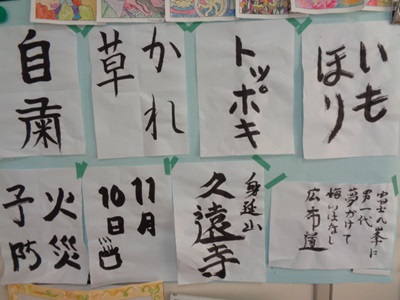 いも
ほり
トッポキ
かれ
草
自粛
男一代
夢かけて
悔いはなし
広布道
身延山
久遠寺
11月
10日
火災
予防